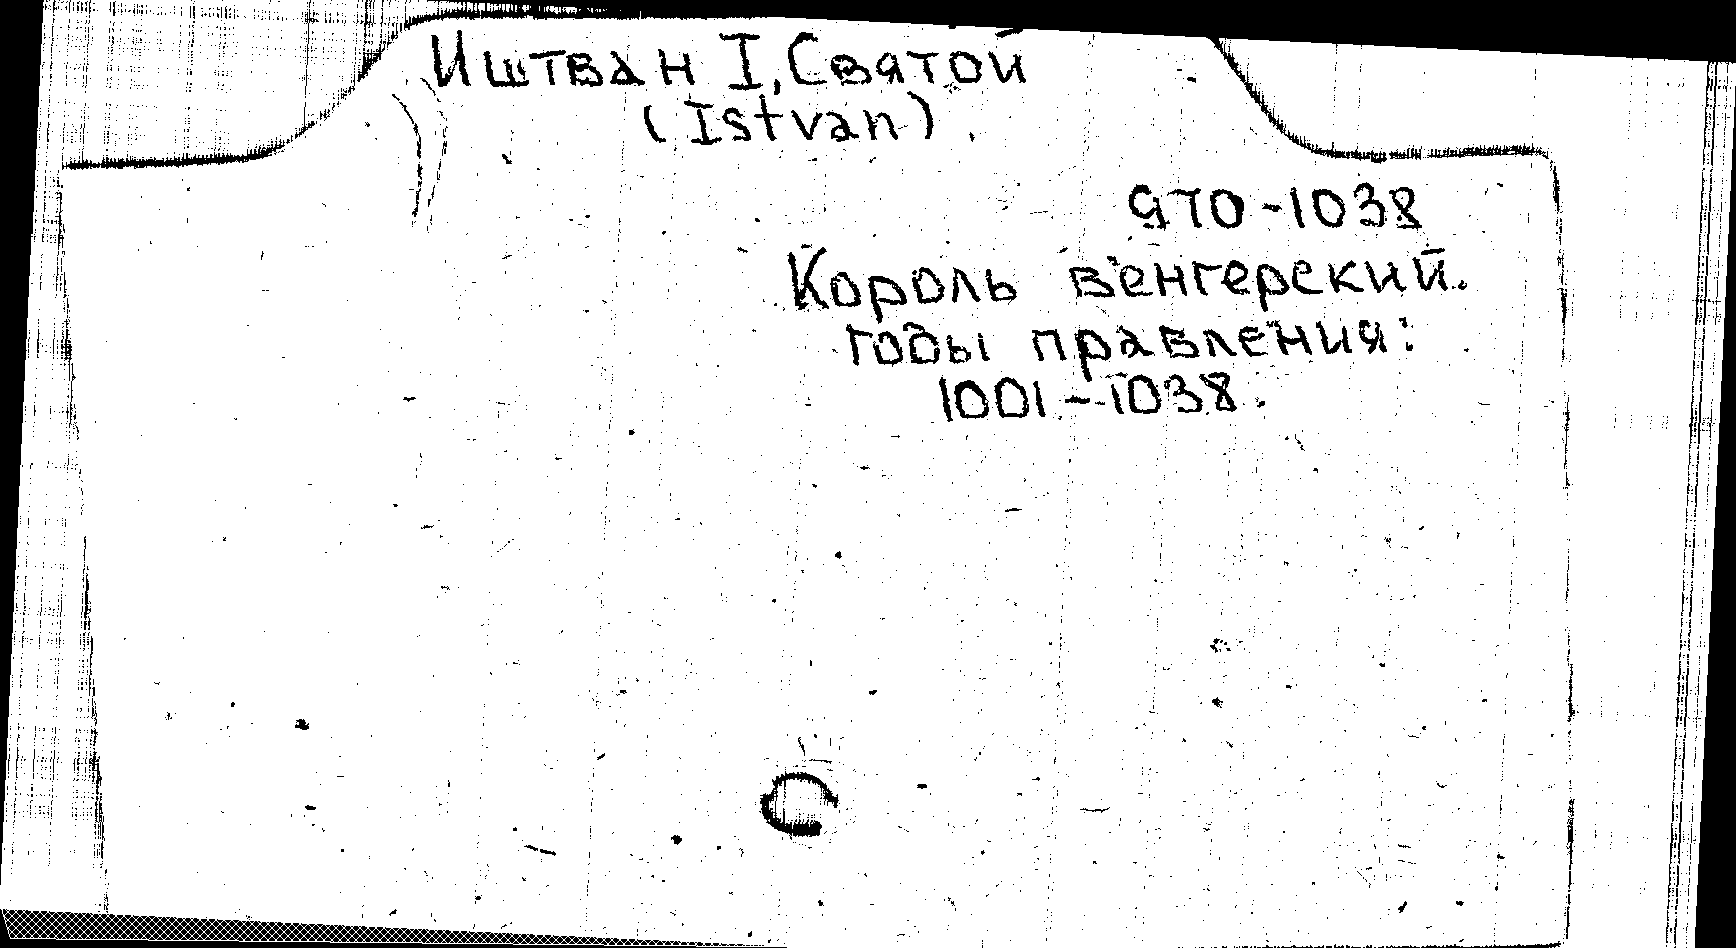 Иштван I, Святой
(Istvan).
970-1038
Король венгерский.
годы правления:
1001-1038.